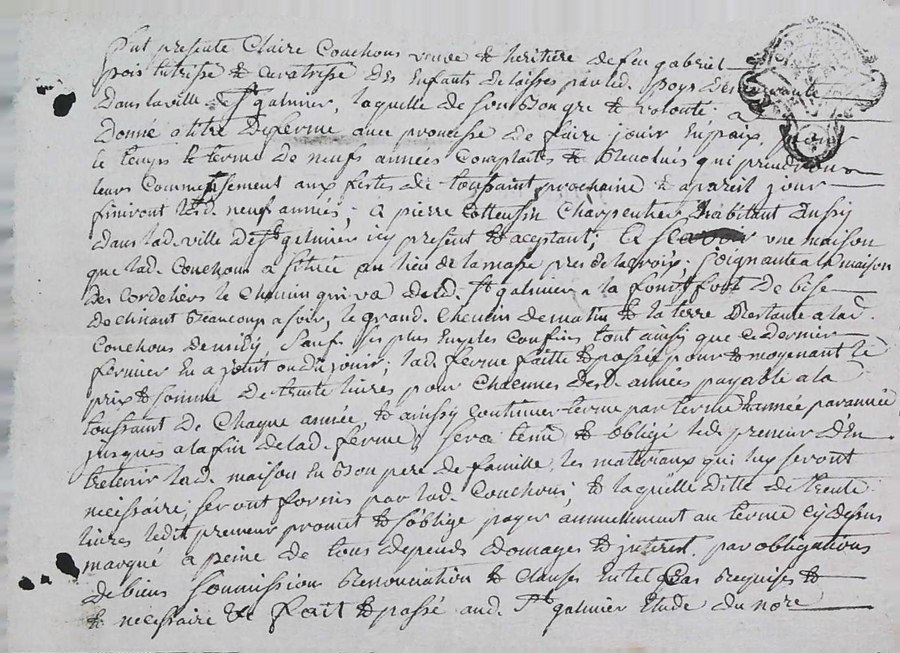 fut presente Claire Couchous veuve & heritiere de feu gabriel
pois tutrisse & curatrisse des enfants delaisses par led. poys de
dans la ville de St galmier, laquelle de son bon gre & volonté a
donné a titre de ferme avec promesse de faire jouir en paix
le temps & terme de neufs années complaites & revolues qui prendront
leurs commensement aux festes de toussaint prochaine & a pareil jour
finiront lesd. neuf années; a pierre Charpentier habitant aussy
dans lad. ville de St galmier icy present & aceptant; a scavoir une maison
que lad. Couchous a située au lieu de la masse pres de la croix; joignante a la maison
des Cordeliers le chemin qui va de lad. St galmier a la font fort de bise
declinant beaucoup a soir, le grand chemin de matin & la terre restante a lad.
Couchous de midy sauf ses plus emples confins tout ainsi que le dernier
fermier en a jouit ou du jouir; lad. ferme faitte & passée pour & moyenant le
prix & somme de trente livres pour chacunes desd. années payable a la
toussaint de chaque année, & ainssy continuer terme par terme & année par année
jusques a la fin de lad. ferme; sera tenu & obligé led. preneur d'en
tretenir lad. maison en bon pere de famille, les materiaux qui luy seront
necessaire, seront fornis par lad. Couchous; & laquelle ditte de trente
livres ledit preneur promet & s'oblige payer annuellement au terme cy dessus
marqué a peine de tous depends domages & interest, par obligations
de biens soumissions renonciation & clauses en tel cas requises &
& necessaire & fait & passé aud. St galmier Etude du nore